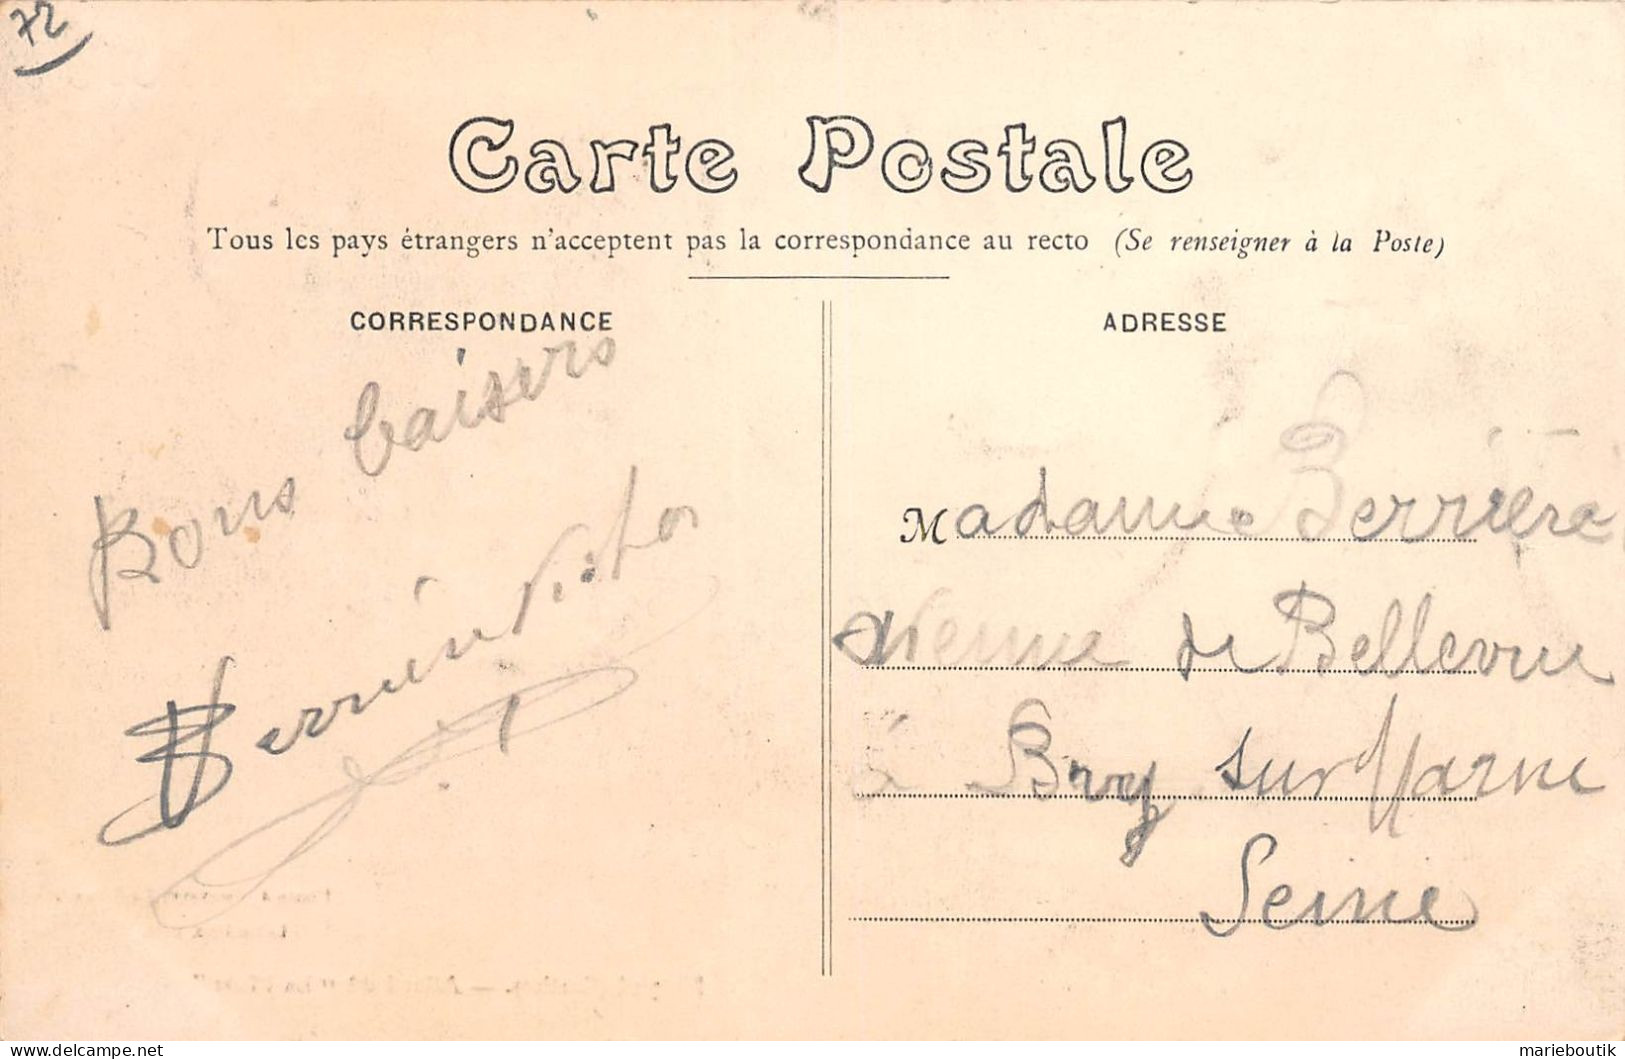 72
Carte Postale
Tous les pays étrangers n'acceptent pas la correspondance au recto (Se renseigner à la Poste)
CORRESPONDANCE
Bons baisers
Victor
ADRESSE
Madame Berrière
avenue de Bellevue
à Bry sur Marne
Seine
delcampe.net
marieboutik